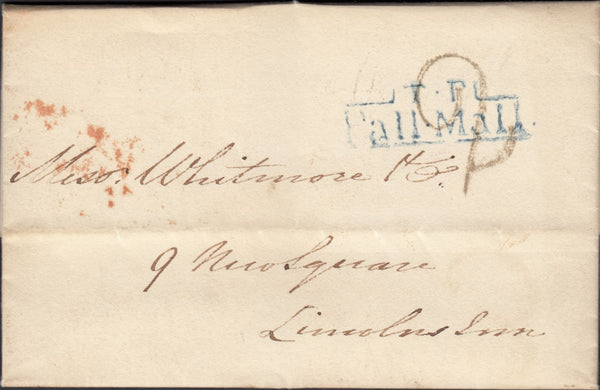 T.P
Pall·Mall
2
Messrs: Whitmore & Co.
9 New Square
Lincolns Inn